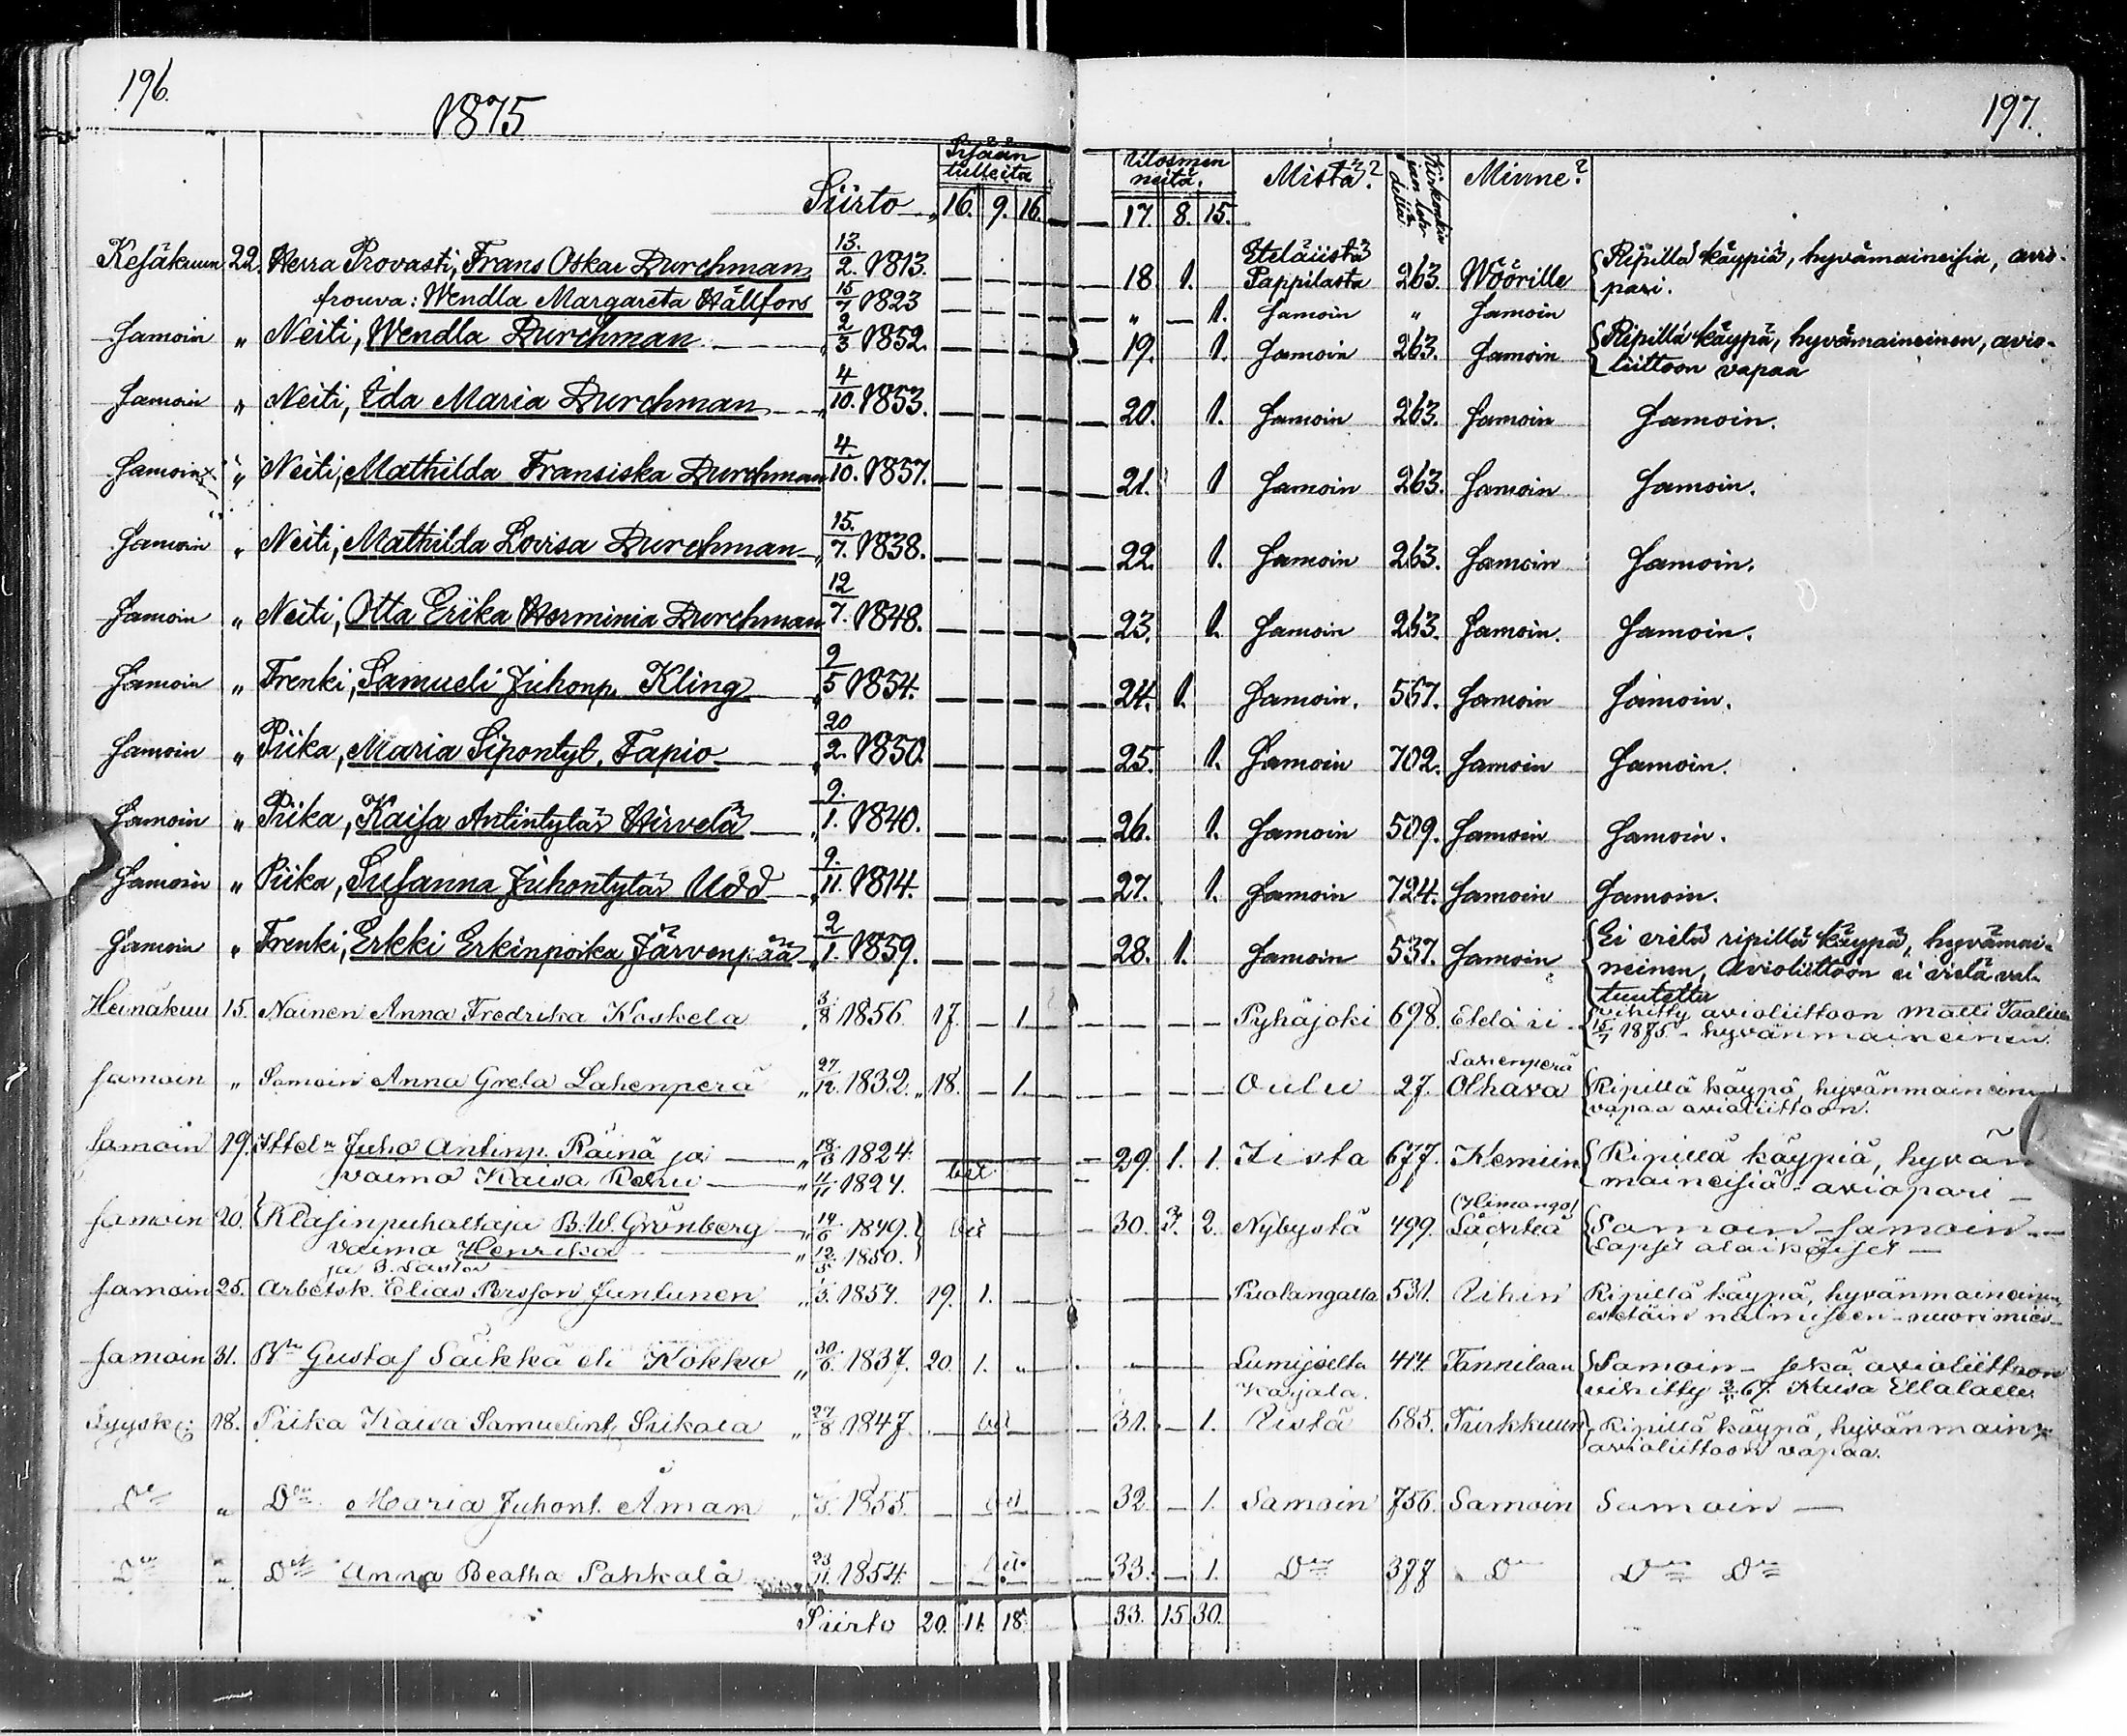 196.
1875
197.
Sisään tulleita
Ulosmenneitä.
Mistä?
Kirkonkirjan lehdellä
Minne?
Siirto 16. 9. 16. 17. 8. 15.
Kesäkuun 22. Herra Provasti, Frans Oskar Durchman 13./2. 1813. 18 1. Eteläiistä Pappilasta 263. Wöörille Ripillä käypiä, hyvämaineisia, avio-
pari.
frouva: Wendla Margareta Hällfors 15/7 1823 „ 1. Samoin „ Samoin
Samoin „ Neiti, Wendla Durchman 2/3 1852. 19. 1. Samoin 263. Samoin Ripillä käypä, hyvämaineinen, avio-
liittoon vapaa
Samoin „ Neiti, Ida Maria Durchman 4/10. 1853. 20. 1. Samoin 263. Samoin Samoin.
Samoin „ Neiti, Mathilda Fransiska Durchman 4./10. 1857. 21. 1 Samoin 263. Samoin Samoin.
Samoin „ Neiti, Mathilda Lovisa Durchman 15./7. 1838. 22. 1. Samoin 263. Samoin Samoin.
Samoin „ Neiti, Otta Erika Herminia Durchman 12/7. 1848. 23. 1. Samoin 263. Samoin. Samoin.
Samoin „ Trenki, Samueli Juhonp. Kling 9/5 1834. 24. 1. Samoin. 567. Samoin Samoin.
Samoin „ Piika, Maria Siponty. Tapio 20/2. 1850. 25. 1. Samoin 702. Samoin Samoin.
Samoin „ Piika, Kaisa Antintytär Hirvelä 9./1. 1840. 26. 1. Samoin 509. Samoin Samoin.
Samoin „ Piika, Susanna Juhontytär Udd 9./11. 1814. 27. 1. Samoin 724. Samoin Samoin.
Samoin „ Trenki, Erkki Erkinpoika Järvenpää 2/1. 1859. 28. 1. Samoin 537. Samoin Ei vielä ripillä käypä, hyvämai-
neinen, Avioliittoon ei vielä val-
tuutettu
Heinäkuu 15. Nainen Anna Fredrika Koskela 3/8 1856. 17. – 1. Pyhäjoki 698. Etelä ii vihitty avioliittoon Matti
15/7 1875 - hyvänmaineinen
Samoin „ Samoin Anna Greta Lahenperä 27/12. 1832. 18. – 1. Oulu 27. Lahenperä Olhava Ripillä käypä, hyvänmaineinen
vapaa avioliittoon.
Samoin 19. Ittel: Juho Antinp. Räinä ja 18/3 1824. 29. 1. 1. Iista 677. Kemiin Ripillä käypiä, hyvän
vaimo Kaisa 11/11 1824. maineisia - aviopari -
Samoin 20. Klasinpuhaltaja B. W. Grönberg 14/6 1849. 30. 3. 2. Nybystä 499. (Himango) Samoin - samoin -
vaimo Henrika 12/5 1850. Lapset alaikäiset -
ja 3. Lasta
Samoin 25. Arbetsk. Elias Persson Juntunen 1854. 19. 1. Puolangalta 531. Iihin Ripillä käypä, hyvänmaineinen,
nuorimies
Samoin 31. Gustaf Säikkä eli Kokko 30/6. 1837. 20. 1. „ Lumijoelta 414. Tannilaan Samoin - sekä avioliittoon
Karjala. vihitty 67.
Syysk: 18. Piika Kaisa Samuelint. Siikala 27/8 1847. 31. – 1. Iistä 685. Turkkuun Ripillä käypä, hyvänmain:
avioliittoon vapaa.
D:o „ D:o Maria Juhont. Åman 1855. 32. – 1. Samoin 756. Samoin Samoin —
D:o „ D:o Anna Beatha Pahkala 23/11. 1854. 33. – 1. D:o 377 D:o D:o D:o
Siirto 20. 11. 18. 33. 15 30.